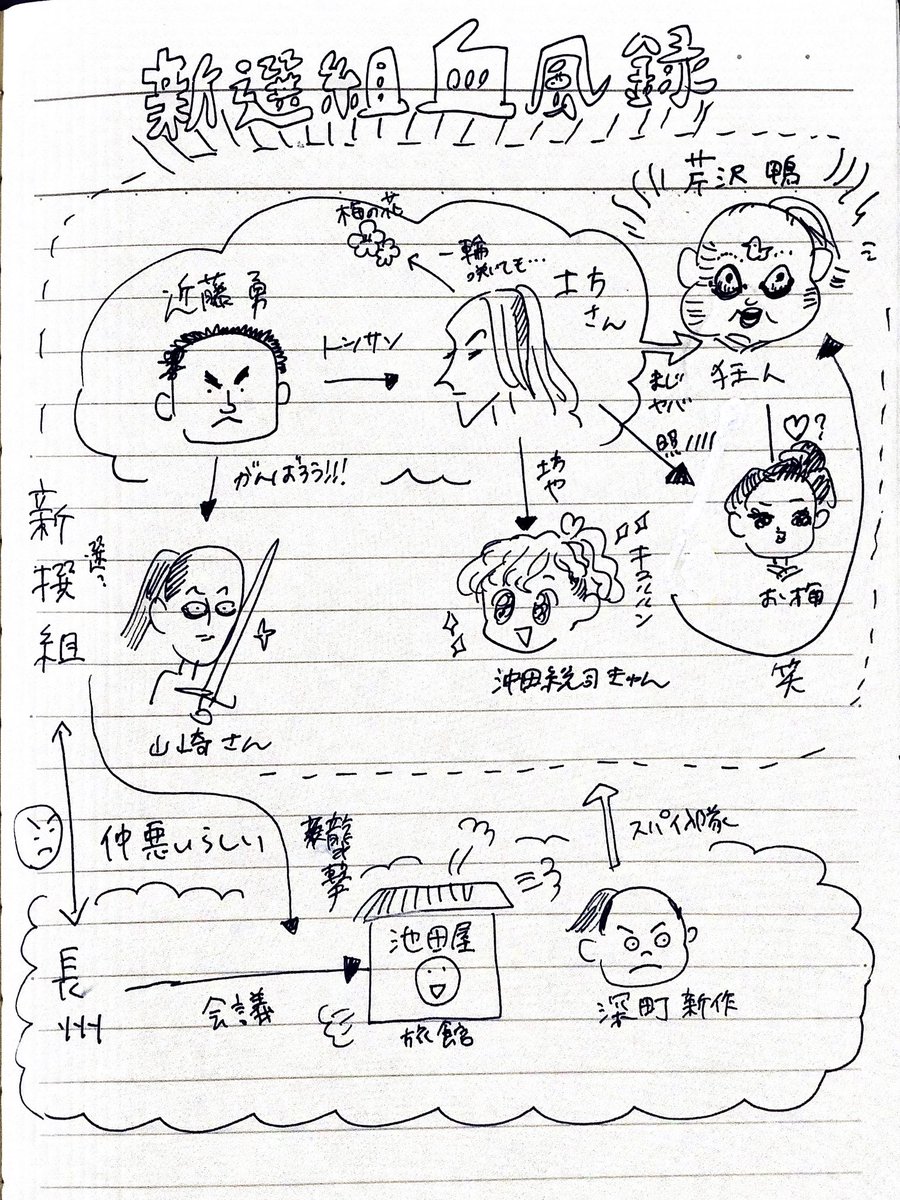 新選組血風録
芹沢 鴨
梅の花
一輪
咲いても…
土方
さん
近藤勇
トシサン
まじ
ヤバ
狂人
照!!!!
♡?
がんばろう!!!
土方
や
新撰組
選?
キュルルン
お梅
沖田総司きゅん
笑
山崎さん
仲悪いらしい
襲撃
スパイ入隊
池田屋
長州
会議
旅館
深町新作